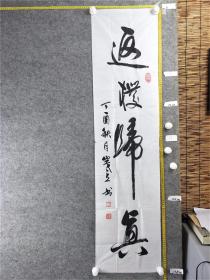 返璞歸真
丁酉秋月
书